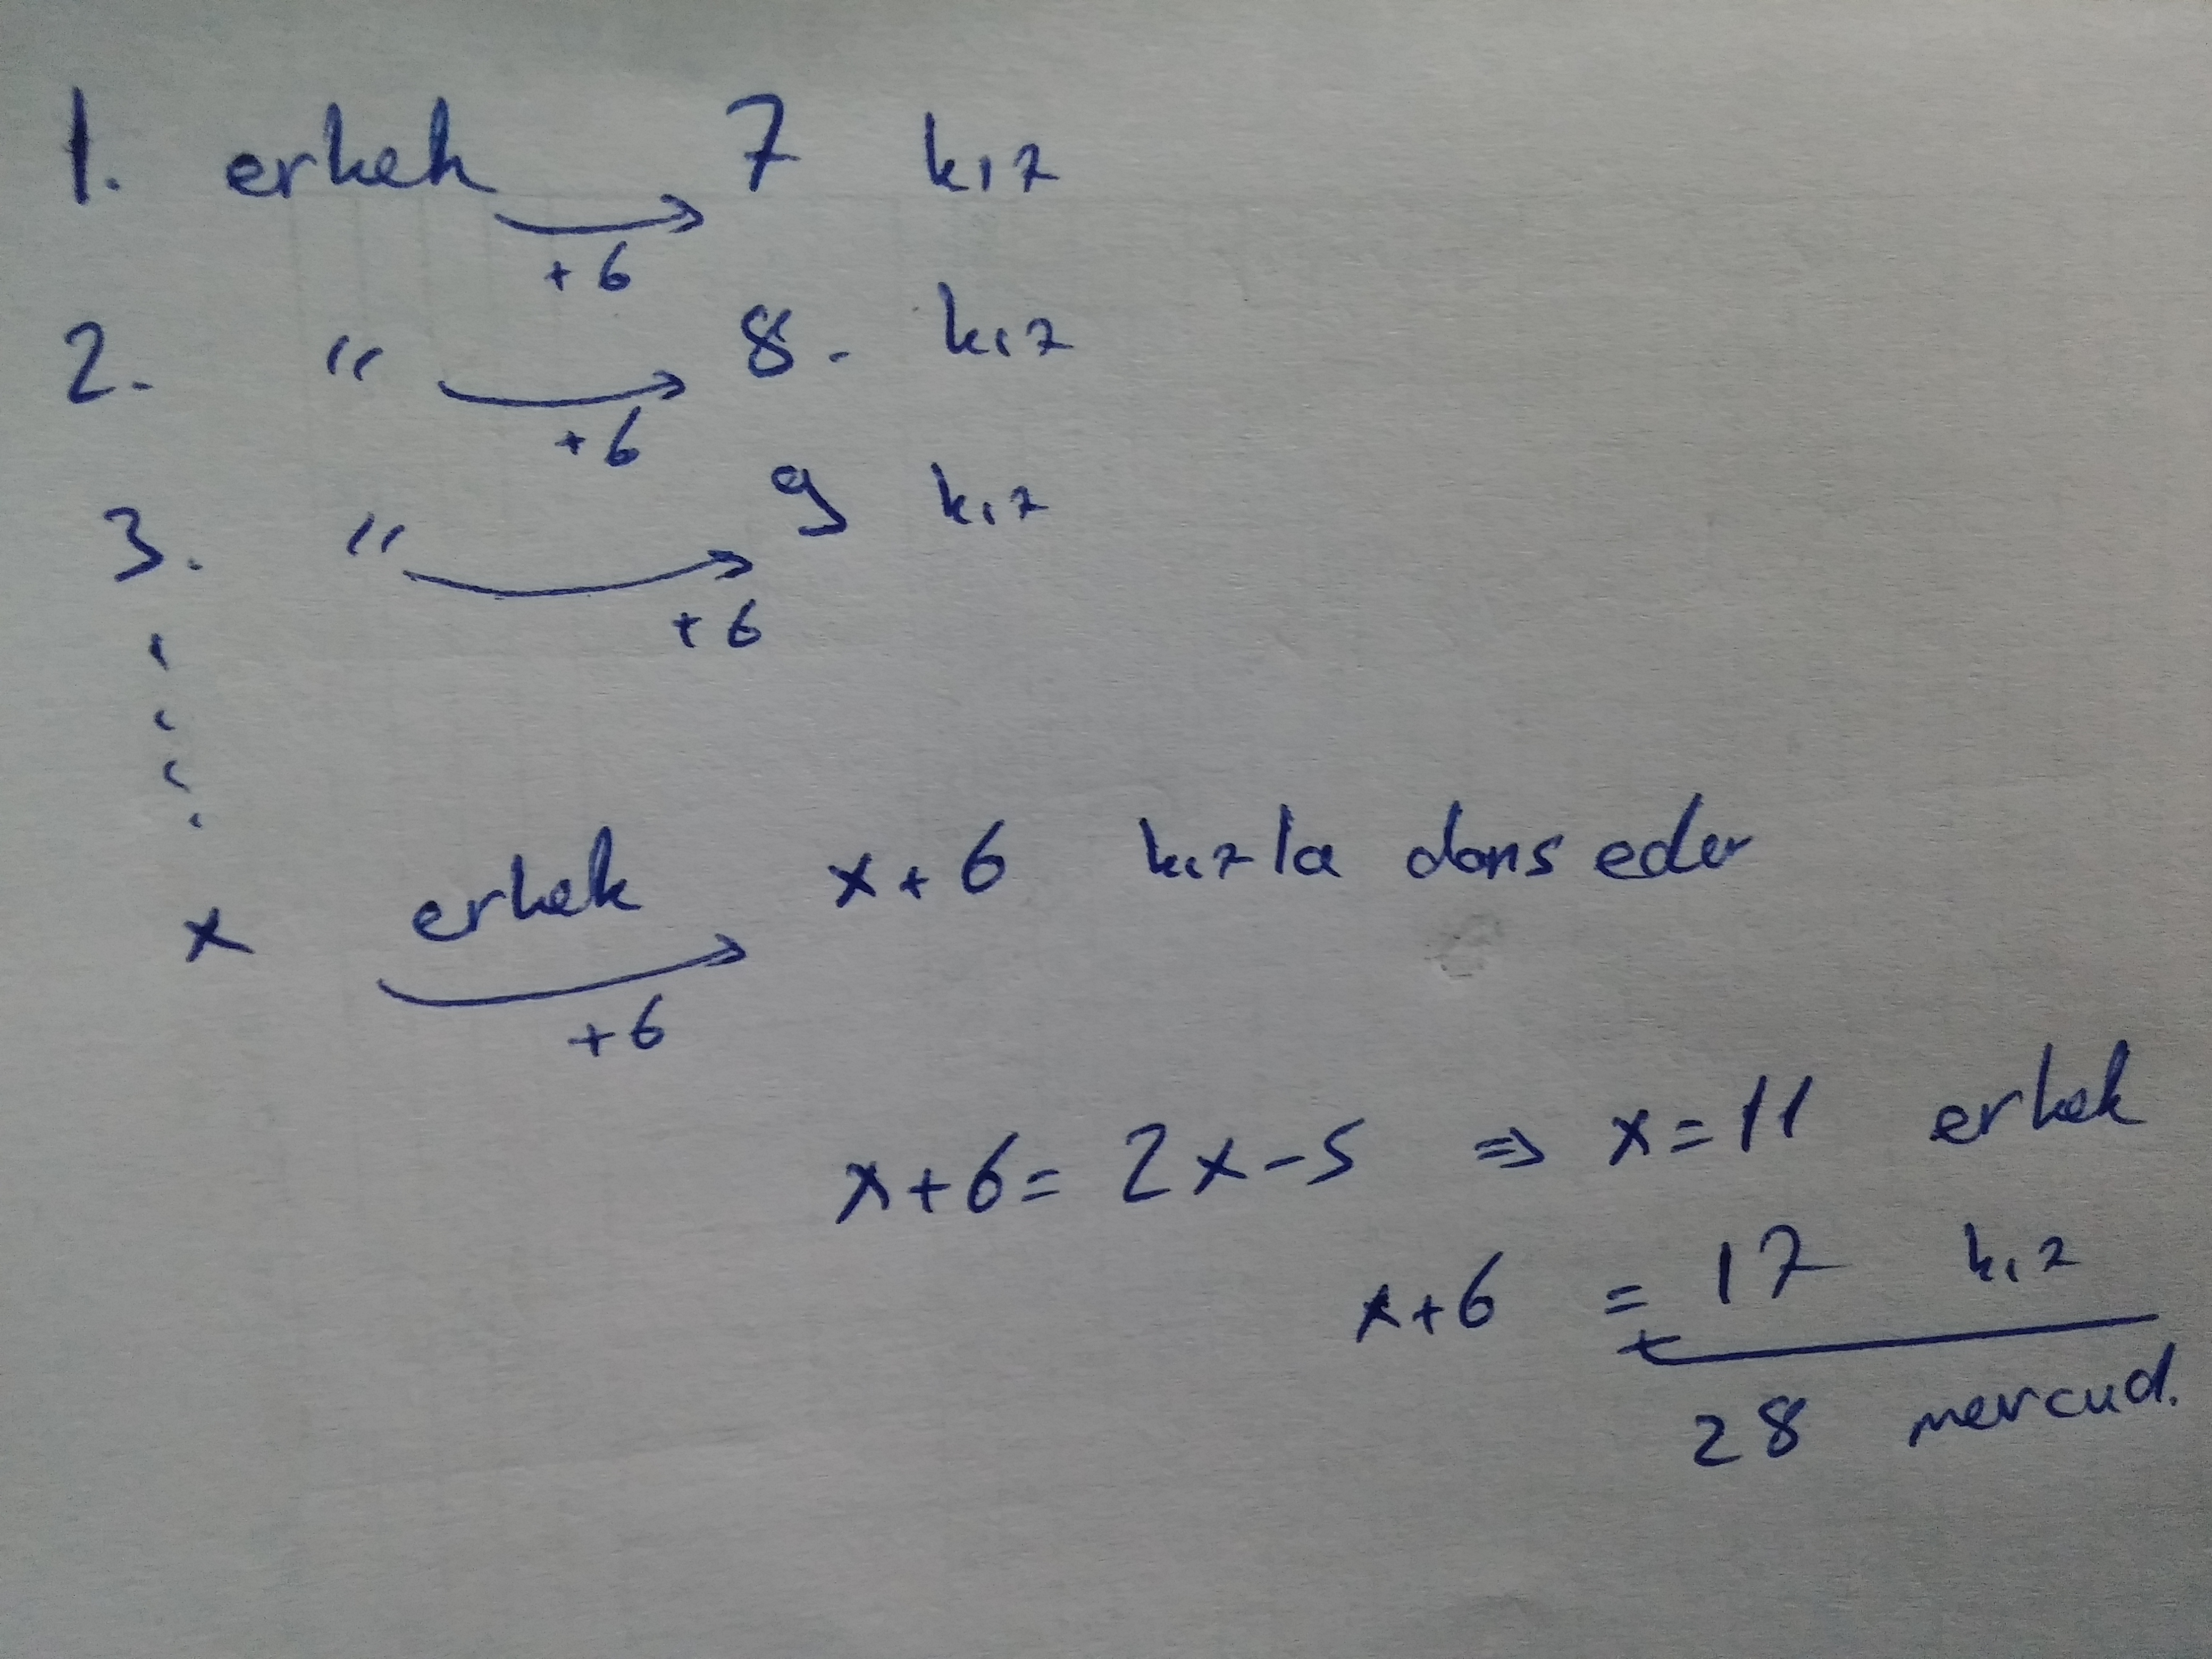 1. erkek 7 kız
+6
2. " 8. kız
+6
3. " 9 kız
+6
x erkek x+6 kızla dans eder
+6
x+6= 2x-5 ⇒ x=11 erkek
x+6 = 17 kız
+
28 mevcud.